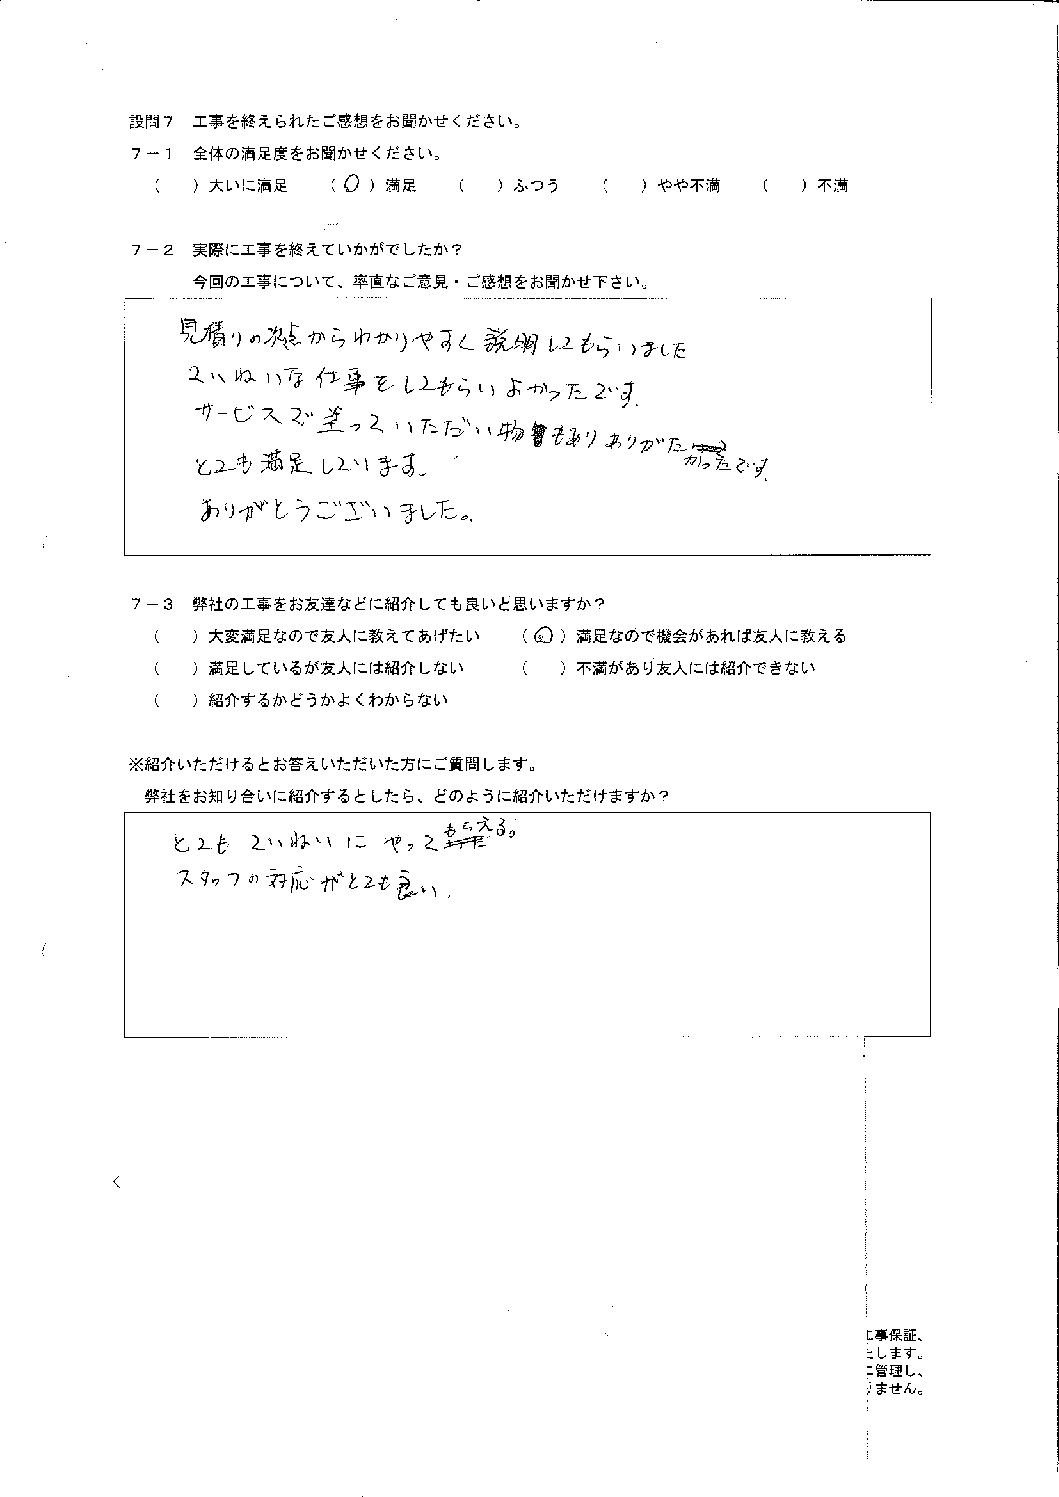 設問7 工事を終えられたご感想をお聞かせください。
7-1 全体の満足度をお聞かせください。
( )大いに満足 (○)満足 ( )ふつう ( )やや不満 ( )不満
7-2 実際に工事を終えていかがでしたか?
今回の工事について、率直なご意見・ご感想をお聞かせ下さい。
見積りの時点からわかりやすく説明してもらいました
ていねいな仕事をしてもらいよかったです。
サービスで塗っていただい物もありありがた
かったです。
とても満足しています。
ありがとうございました。
7-3 弊社の工事をお友達などに紹介しても良いと思いますか?
( )大変満足なので友人に教えてあげたい (○)満足なので機会があれば友人に教える
( )満足しているが友人には紹介しない ( )不満があり友人には紹介できない
( )紹介するかどうかよくわからない
※紹介いただけるとお答えいただいた方にご質問します。
弊社をお知り合いに紹介するとしたら、どのように紹介いただけますか?
とても ていねいに やってもらえる。
スタッフの対応がとても良い。
工事保証、
たします。
に管理し、
りません。